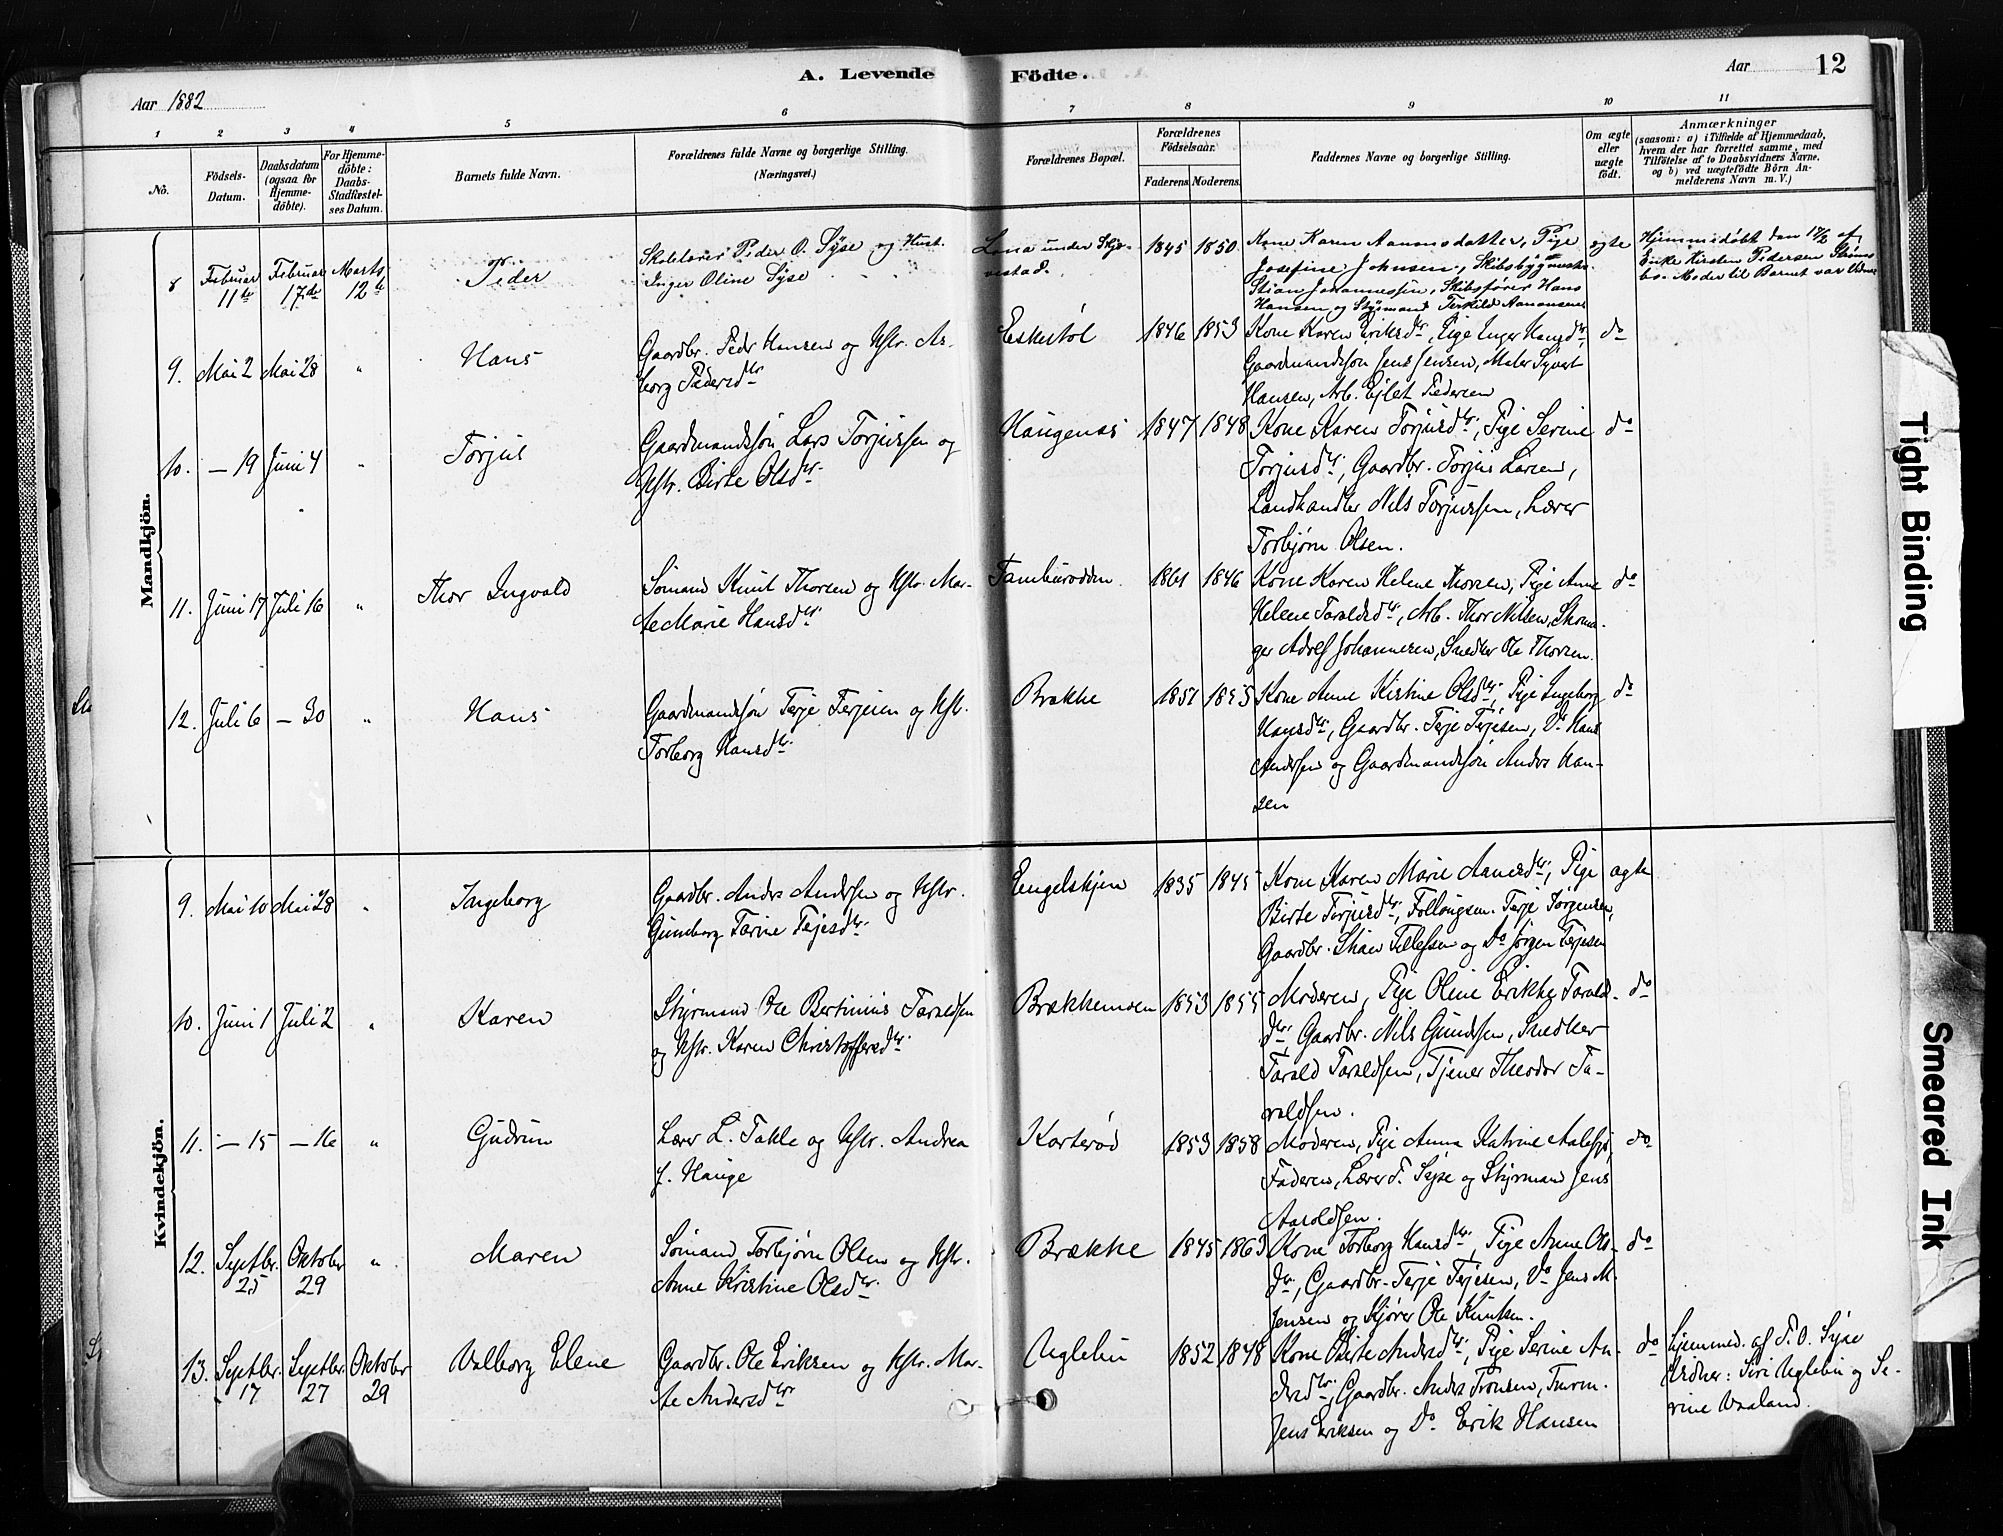 A. Levende Födte.
Aar 1882
Aar 12
1 2 3 4 5 6 7 8 9 10 11
No.
Födsels-Datum.
Daabsdatum (ogsaa for Hjemme-döbte).
For Hjemme-döbte: Daabs-Stadfæstel-ses Datum.
Barnets fulde Navn.
Forældrenes fulde Navne og borgerlige Stilling.
(Næringsvei.)
Forældrenes Bopæl.
Forældrenes Födselsaar.
Faderens. Moderens.
Faddernes Navne og borgerlige Stilling.
Om ægte eller uægte födt.
Anmærkninger
(saasom: a) i Tilfælde af Hjemmedaab,
hvem der har forrettet samme, med
Tilföielse af to Daabsvidners Navne,
og b) ved uægtefödte Börn An-
melderens Navn m. V.)
Mandkjön.
8 Februar 11te Februar 17de Marts 12te
Peder
Skolelærer Peder O. Syse og Hust.
Inger Oline Syse
Lona under Skjævestad.
1845 1850
Kone Karen Aanonsdatter, Pige
Josefine Johnsen, Skibsbygmester
Stian Johannessen, Skibsfører Hans
Hansen og Styrmand Terkild Aanonsens
ægte
Hjemmedøbt den 17/2 af
Enke Kirsten Pedersen
Moder til Barnet var Vidne
9. Mai 2 Mai 28 "
Hans
Gaardbr. Peder Hansen og Hstr. As-
borg Pedersdtr.
Eskestøl
1846 1853
Kone Karen Eriksdtr, Pige Inger Hansdtr.
Gaardmandssøn Jens Jensen, Maler Syvert
Hansen, Arb. Ejlet Pedersen
do
10. — 19 Juni 4 "
Torjus
Gaardmandssøn Lars Torjussen og
Hstr. Birte Olsdtr.
Haugenes
1847 1848
Kone Karen Torjusdtr, Pige Serine
Torjusdtr, Gaardbr. Torjus Larsen,
Landhandler Nils Torjussen, Lærer
Torbjørn Olsen.
do
11. Juni 17 Juli 16 "
Thor Ingvald
Sømand Knut Thorsen og Hstr. Mar-
te Marie Hansdtr.
Tamburodden.
1861 1846
Kone Karen Helene Thorsen, Pige Anne
Helene Taraldsdtr, Arb. Thor Nilsen, Skoma-
ger Adolf Johannesen, Snedker Ole Thorsen.
do
12. Juli 6 — 30 "
Hans
Gaardmandssøn Terje Terjesen og Hstr.
Torborg Hansdtr.
Brække
1851 1855
Kone Anne Kistine Olsdtr, Pige Ingeborg
Hansdtr, Gaardbr. Terje Terjesen, Do Hans
Andersen og Gaardmandssøn Anders Han-
sen
do
Kvindekjön.
9. Mai 10 Mai 28 "
Ingeborg
Gaardbr. Anders Andersen og Hstr.
Gunborg Tarine Terjesdtr.
Engelskjen
1835 1845
Kone Karen Marie Aanesdtr, Pige
Birte Torjusdtr, Follaugsm. Terje Jørgensen,
Gaardbr. Skaar Tellefsen og Do Jørgen Terjesen
ægte
10. Juni 1 Juli 2 "
Karen
Styrmand Ole Bertinius Taraldsen
og Hstr. Karen Christoffersdtr.
Brækkemoen
1853 1855
Moderen, Pige Oline Erikke Taralds-
dtr, Gaardbr. Nils Gundersen, Snedker
Tarald Taraldsen, Tjener Theodor Ta-
raldsen.
do
11. — 15 — 16 "
Gudrun
Lærer L. Takle og Hstr. Andrea
J. Hauge
Karterød
1853 1858
Moderen, Pige Anna Katrine Aalesjø,
Faderen, Lærer P. Syse og Styrmand Jens
Aaroldsen.
do
12. Septbr. 25 Oktober 29 "
Maren
Sømand Torbjørn Olsen og Hstr.
Anne Kristine Olsdtr.
Brække
1845 1863
Kone Torborg Hansdtr, Pige Anne Ols-
dtr, Gaardbr. Terje Terjesen, Do Jens M.
Jensen og Kjører Ole Knutsen.
do
13. Septbr. 17 Septbr. 27 Oktober 29
Valborg Elene
Gaardbr. Ole Eriksen og Hstr. Mar-
te Andersdtr
Uglebu
1852 1848
Kone Birte Andersdtr, Pige Serine An-
dersdtr, Gaardbr. Anders Tronsen, Turm.
Jens Eriksen og Do Erik Hansen
do
Hjemmed. af P. O. Syse
Vidner: Siri Uglebu og Se-
rine Vaaland.
Tight Binding
Smeared Ink